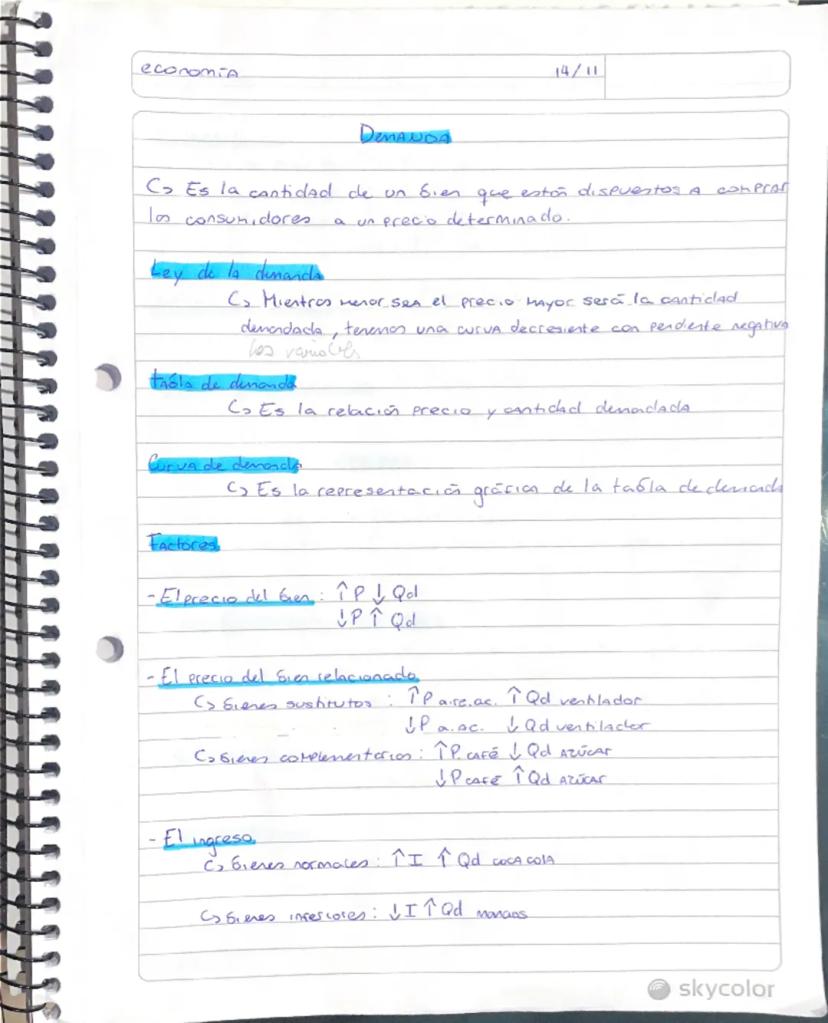 economía 14/11
DEMANDA
↳ Es la cantidad de un bien que están dispuestos a comprar
los consumidores a un precio determinado.
Ley de la demanda
↳ Mientras menor sea el precio mayor será la cantidad
demandada, tenemos una curva decresiente con pendiente negativa
las variables
tabla de demanda
↳ Es la relación precio y cantidad demandada
Curva de demanda
↳ Es la representación gráfica de la tabla de demanda
Factores
- El precio del bien: ↑P ↓Qd
↓P ↑Qd
- El precio del bien relacionado
↳ bienes sustitutos: ↑P aire.ac. ↑Qd ventilador
↓P a.ac. ↓Qd ventilador
↳ bienes complementarios: ↑P. CAFÉ ↓Qd AZÚCAR
↓P CAFÉ ↑Qd AZÚCAR
- El ingreso
↳ bienes normales: ↑I ↑Qd COCA COLA
↳ bienes inferiores: ↓I ↑Qd manaos
skycolor